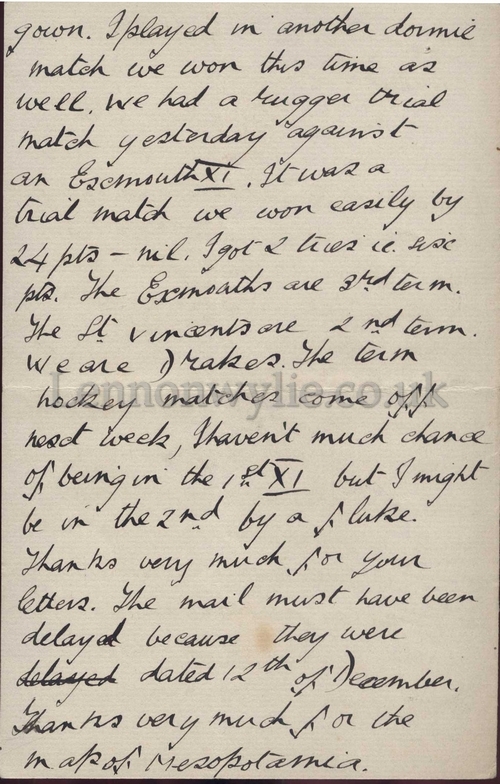 gown. I played in another dormie
match we won this time as
well. We had a rugger trial
match yesterday against
an Exmouth XI. It was a
trial match we won easily by
24 pts - nil. I got 2 tries i.e. six
pts. The Exmouths are 3rd term.
The St Vincents are 2nd term.
We are Drakes. The term
Lennonwylie.co.uk
hockey matches come off
next week, I haven't much chance
of being in the 1st XI but I might
be in the 2nd by a fluke.
Thanks very much for your
letters. The mail must have been
delayed because they were
delayed dated 12th of December.
Thanks very much for the
map of Mesopotamia.